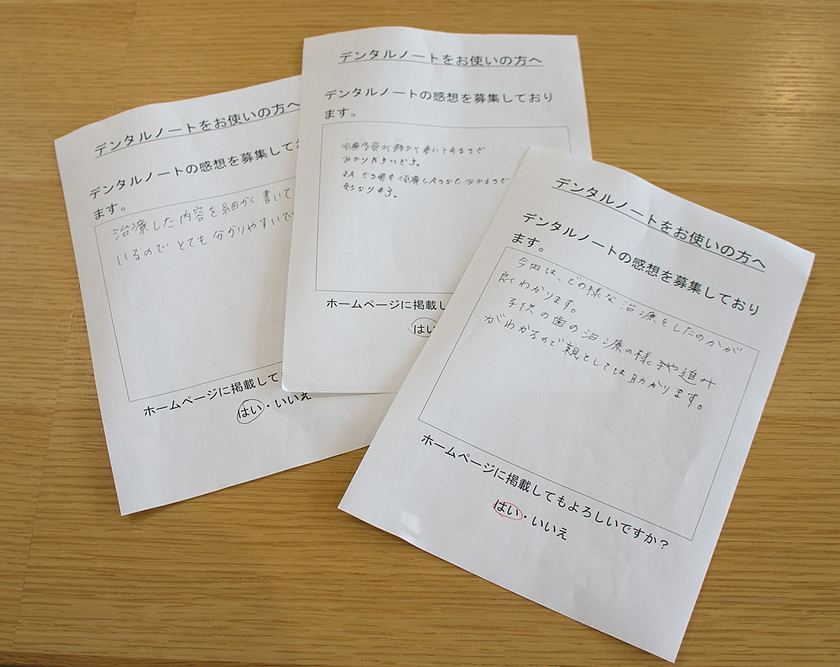 デンタルノートをお使いの方へ
デンタルノートの感想を募集してお
ます。
治療した内容を細かく書いて
いるので とても 分かりやすいで
ホームページに掲載して
はい・いいえ
デンタルノートをお使いの方へ
デンタルノートの感想を募集しており
ます。
治療内容が 細かく書いてあるので
わかりやすいです。
治療したのかも わかるので
ホームページに掲
はい
デンタルノートをお使いの方へ
デンタルノートの感想を募集しており
ます。
今回は、どの様な治療をしたのかが
良くわかります。
子供の歯の治療の様子や進み
がわかるので親としては助かります。
ホームページに掲載してもよろしいですか？
はい・いいえ